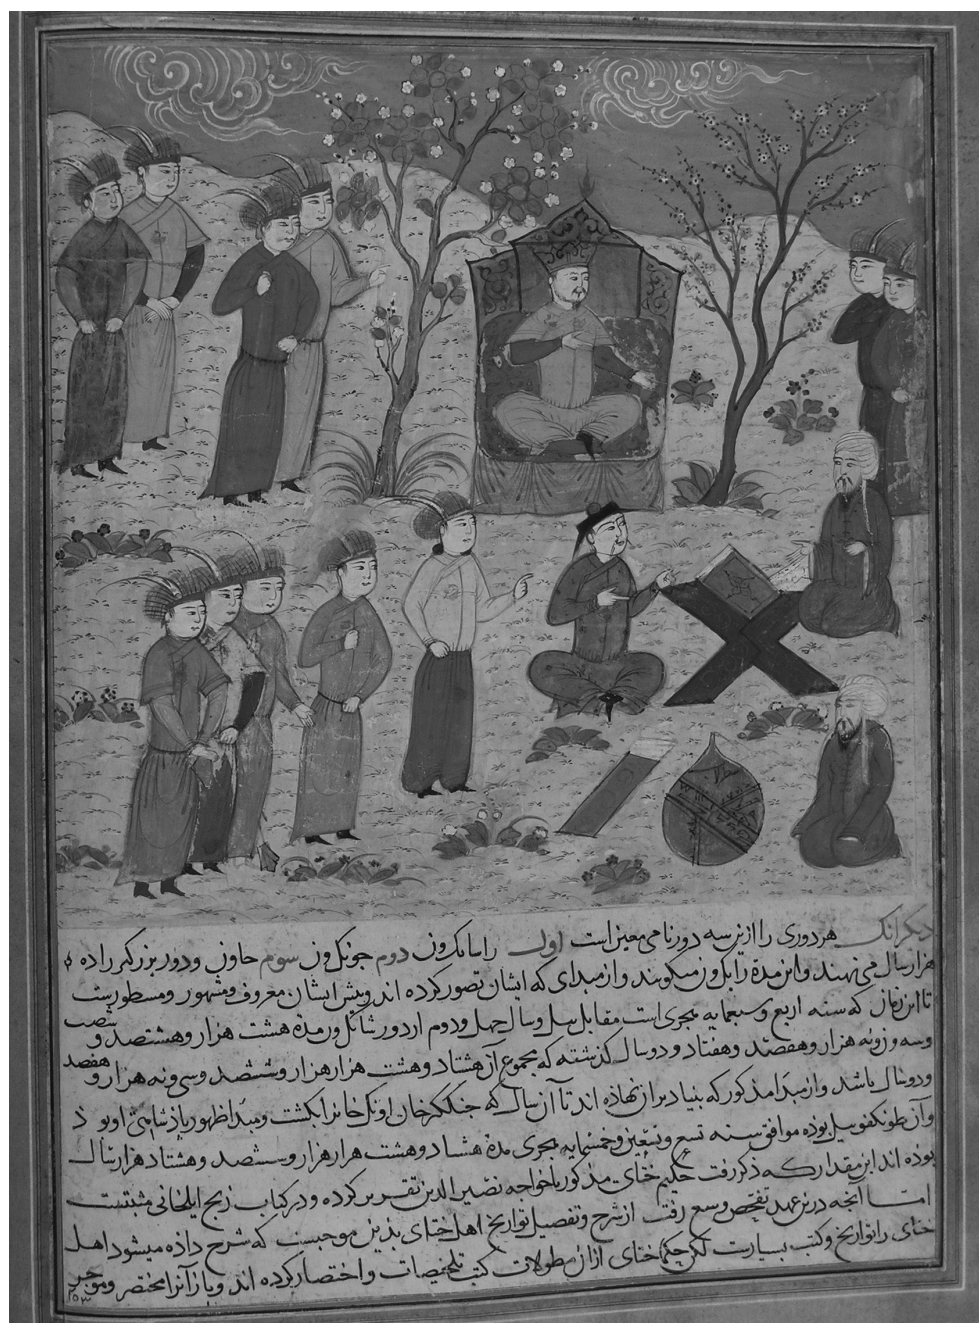 دیکر آنک هر دوری را ازین سه دور نامی معین است اول را شانک ون دوم جونک ون سوم خاون و دور بزرگتر را ده
هزار سال می نهند و این مدة را یک ون میکویند و از مبدای که ایشان تصور کرده اند و پیش ایشان معروف و مشهور و مسطورست
تا این زمان که سنه اربع و سبعمایه هجری است مقابل سال چهل و دوم از دور شانک ون مدة هشت هزار و هشتصد و شصت
وسه ون و نه هزار و هفصد و هفتاد و دو سال کذشته که مجموع آن هشتاد و هشت هزار هزار و ششصد و سی و نه هزار و هفصد
و دو سال باشد و از مبدا مذکور که بنیاد بران نهاذه اند تا آن سال که جنککز خان اونک خانرا بکشت و مبدا ظهور پاذشاهی او بوذ
وآن سال بوذه موافق سنه تسع و تسعین و خمسمایه هجری مدة هشتاد و هشت هزار هزار و ششصد و هشتاد هزار سال
بوذه اند این مقدار که ذکر رفت حکیم ختای مذکور با خواجه نصیر الدین تقریر کرده و در کتاب زیج ایلخانی مثبتست
امّا آنچه درین عهد تفحص وسع رفت از شرح و تفصیل تواریخ اهل ختای بذین موجبست که شرح داذه میشود اهل
ختای را تواریخ و کتب بسیارست لکن حکماء ختای از ان مطولات کتب تلخیصات و اختصار کرده اند و باز آنرا مختصر و موجز